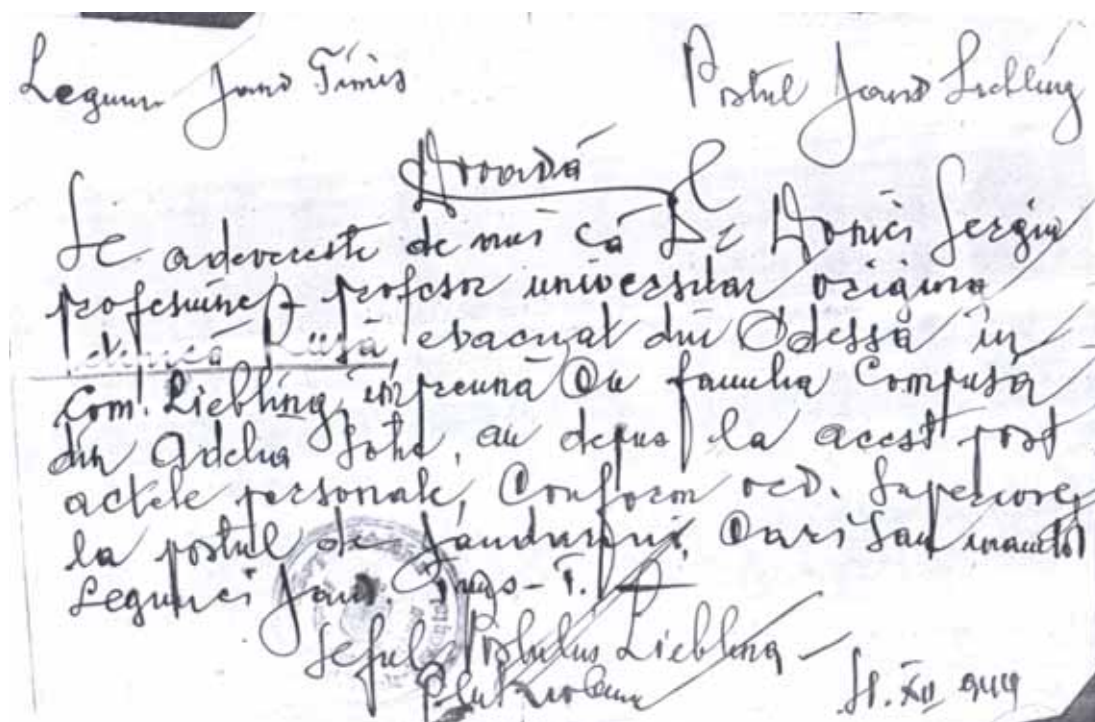 Legiunea Jand Timiș Postul Jand Liebling
Dovadă
Se adeverește de noi că Dl Donici Sergiu
profesiune profesor universitar origina
Rusă evacuat din Odessa în
Com. Liebling, împreună cu familia compusă
din Adelia soție, au depus la acest post
actele personale, conform ord. Superioare,
la postul de jandarmi, cari sau inaintat
Legiunei Jand. Timiș-T.
Șeful Postului Liebling
XII 944